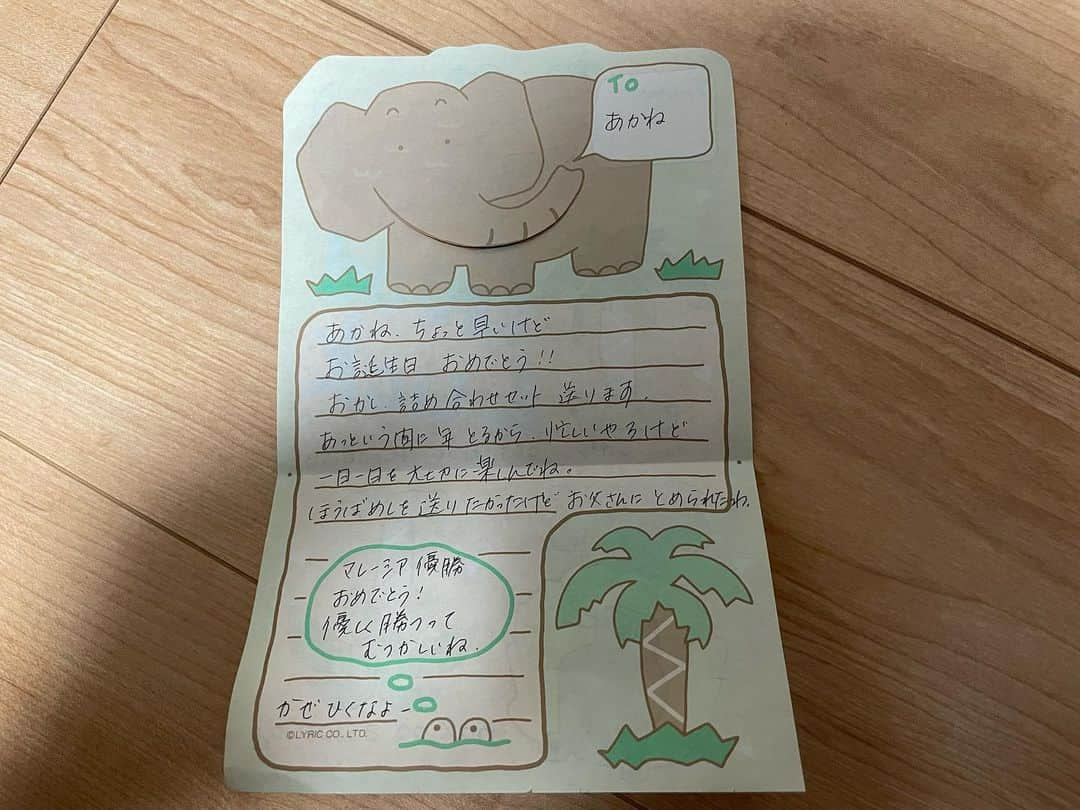 To
あかね
あかね、ちょっと早いけど
お誕生日 おめでとう!!
おかし 詰め合わせセット 送ります。
あっという間に年とるから、忙しいやろけど
一日一日を大切に楽しんでね。
ほうばめしを送りたかったけど お父さんに とめられたわ。
マレーシア優勝
おめでとう!
優しく勝つって
むつかしいね。
かぜひくなよー
©LYRIC CO., LTD.